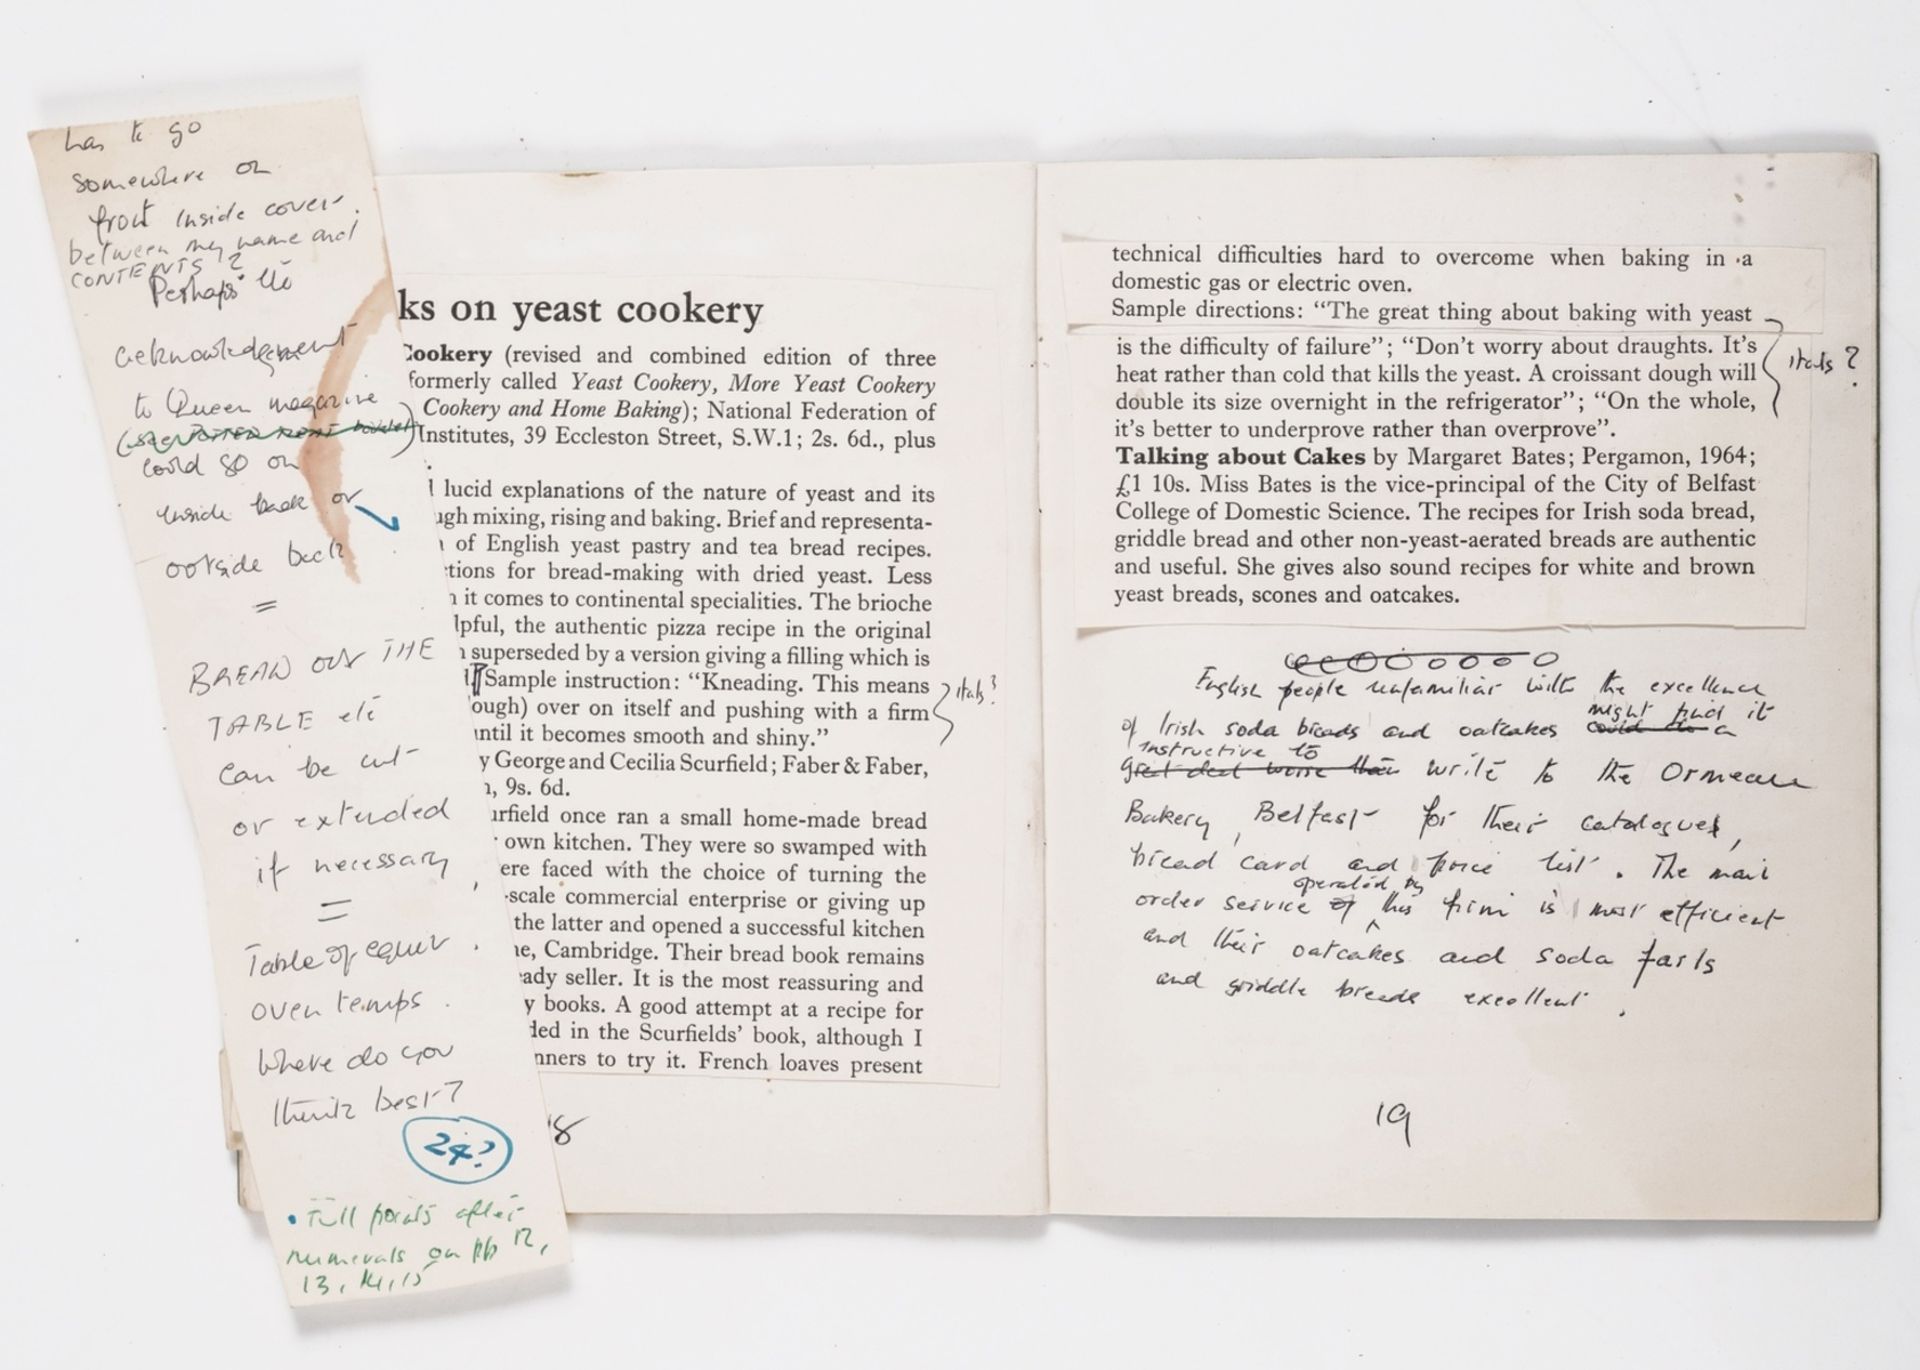 has to go
somewhere on
front inside cover.
between my name and
CONTENTS?
Perhaps the
acknowledgement
to Queen magazine
could go on
inside back or
outside back
=
BREAD ON THE
TABLE etc
can be cut
or extended
if necessary
=
Table of equiv.
oven temps.
Where do you
think best?
24?
• Full points after
numerals on pp 12,
13, 14, 15
ks on yeast cookery
Cookery (revised and combined edition of three
formerly called Yeast Cookery, More Yeast Cookery
Cookery and Home Baking); National Federation of
Institutes, 39 Eccleston Street, S.W.1; 2s. 6d., plus
lucid explanations of the nature of yeast and its
ugh mixing, rising and baking. Brief and representa-
of English yeast pastry and tea bread recipes.
tions for bread-making with dried yeast. Less
it comes to continental specialities. The brioche
lpful, the authentic pizza recipe in the original
superseded by a version giving a filling which is
Sample instruction: "Kneading. This means
ough) over on itself and pushing with a firm
until it becomes smooth and shiny."
itals?
y George and Cecilia Scurfield; Faber & Faber,
n, 9s. 6d.
urfield once ran a small home-made bread
own kitchen. They were so swamped with
ere faced with the choice of turning the
-scale commercial enterprise or giving up
the latter and opened a successful kitchen
ne, Cambridge. Their bread book remains
eady seller. It is the most reassuring and
y books. A good attempt at a recipe for
ded in the Scurfields' book, although I
nners to try it. French loaves present
8
technical difficulties hard to overcome when baking in a
domestic gas or electric oven.
Sample directions: "The great thing about baking with yeast
is the difficulty of failure"; "Don't worry about draughts. It's
heat rather than cold that kills the yeast. A croissant dough will
double its size overnight in the refrigerator"; "On the whole,
it's better to underprove rather than overprove".
itals?
Talking about Cakes by Margaret Bates; Pergamon, 1964;
£1 10s. Miss Bates is the vice-principal of the City of Belfast
College of Domestic Science. The recipes for Irish soda bread,
griddle bread and other non-yeast-aerated breads are authentic
and useful. She gives also sound recipes for white and brown
yeast breads, scones and oatcakes.
English people unfamiliar with the excellence
of Irish soda breads and oatcakes might find it
instructive to write to the Ormeau
Bakery, Belfast for their catalogue,
bread card and price list. The mail
order service operated by this firm is most efficient
and their oatcakes and soda farls
and griddle breads excellent.
19